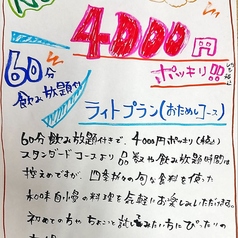 4000円
ポッキリ!!
60分
飲み放題や
ライトプラン(おためしコース)
60分飲み放題付きで、4000円ポッキリ(税込)
スタンダードコースより品数や飲み放題時間は
控えめですが、四季折々の旬な食材を使った
加味自慢の料理を気軽にお楽しみいただけます。
初めての方やちょこっと試してみたい方にぴったりの